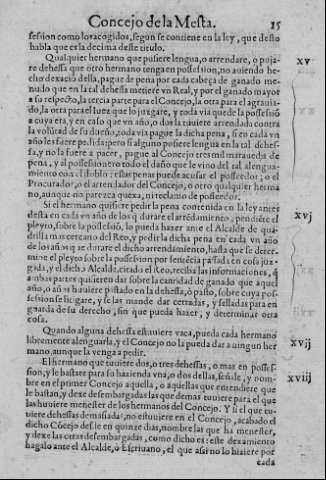 Concejo de la Mesta. 15
session como los acogidos, segun se contiene en la ley, que desto
habla que es la decima deste titulo.
Qualquier hermano que pusiere lengua, o arrendare, o puja-
re dehessa que otro hermano tenga en possession, no auiendo he-
cho dexació della, pague de pena por cada cabeça de ganado me-
nudo que en la tal dehessa metiere vn Real, y por el ganado mayor
a su respecto, la tercia parte para el Concejo, la otra para el agrauia-
do, la otra para el juez que lo juzgare, y toda via quede la possessió
a cuya era, y en caso que vn año, o dos la tuuiere arrendada contra
la volútad de su dueño, toda via pague la dicha pena, si en cada vn
año les fuere pedida: pero si alguno pusiere lengua en la tal dehes-
sa, y no la fuere a pacer, pague al Concejo tres mil marauedis de
pena, y al possessionero todo el daño que le vino del tal alengua-
miento con el doblo: estas penas puede acusar el posseedor, o el
Procurador, o el arrendador del Concejo, o otro qualquier herma
no, aunque no parezca quexa, ni reclamo de posseedor.
Si el hermano quisiere pedir la pena contenida en la ley antes
desta en cada vn año de los q̃ durare el arrédamiento, pendiéte el
pleyto, sobre la possessió, lo pueda hazer ante el Alcalde de qua-
drilla mas cercano del Reo, y pedir la dicha pena en cada vn año
de los años q̃ se durare el dicho arrendamiento, hasta que se deter-
mine el pleyto sobre la possession por sentécia passada en cosa juz-
gada, y el dicho Alcalde, citado el Reo, reciba las informaciones, q̃
ambas partes quisieren dar sobre la cantidad de ganado que aquel
año, o años huuiere pastado en la dehessa, o pasto, sobre cuya pos-
session se litigare, y se las mande dar cerradas, y selladas para en
guarda de su derecho, sin que pueda hazer, y determinar otra
cosa.
Quando alguna dehessa estuuiere vaca, pueda cada hermano
libremente alenguarla, y el Concejo no la pueda dar a ningun her
mano, aunque la venga a pedir.
El hermano que tuuiere dos, o tres dehessas, o mas en posses-
sion, y le bastare para su hazienda vna, o dos dellas, señale, y nom-
bre en el primer Concejo aquella, o aquellas que entendiere que
le bastan, y dexe desembargadas las que demas tuuiere para el que
las huuiere menester de los hermanos del Concejo. Y si el que tu-
uiere dehessas demasiadas, no estuuiere en el Concejo, acabado el
dicho Cócejo desde en quinze dias, nombre las que ha menester,
y dexe las otras desembargadas, como dicho es: este dexamiento
hagalo ante el Alcalde, ò Escriuano, el que assi no lo hiziere por
cada
xv
xvj
xvij
xviij